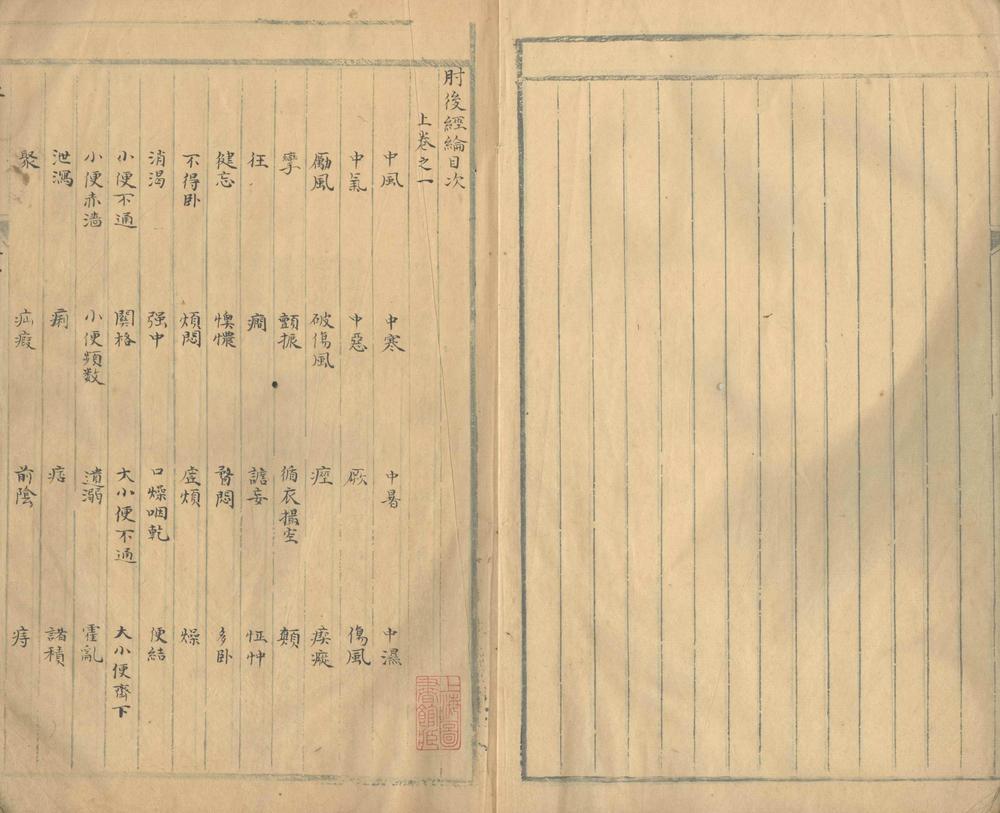 肘後經綸目次
上卷之一
中風 中寒 中暑 中濕
中氣 中惡 厥 傷風
癘風 破傷風 痙 瘈瘲
攣 顫振 循衣撮空 顛
狂 癇 譫妄 怔忡
健忘 懊憹 瞀悶 多卧
不得卧 煩悶 虛煩 燥
消渴 强中 口燥咽乾 便結
小便不通 関格 大小便不通 大小便齊下
小便赤濇 小便頻数 遺溺 霍亂
泄瀉 痢 痞 諸積
聚 疝瘕 前陰 痔
上海圖書館藏